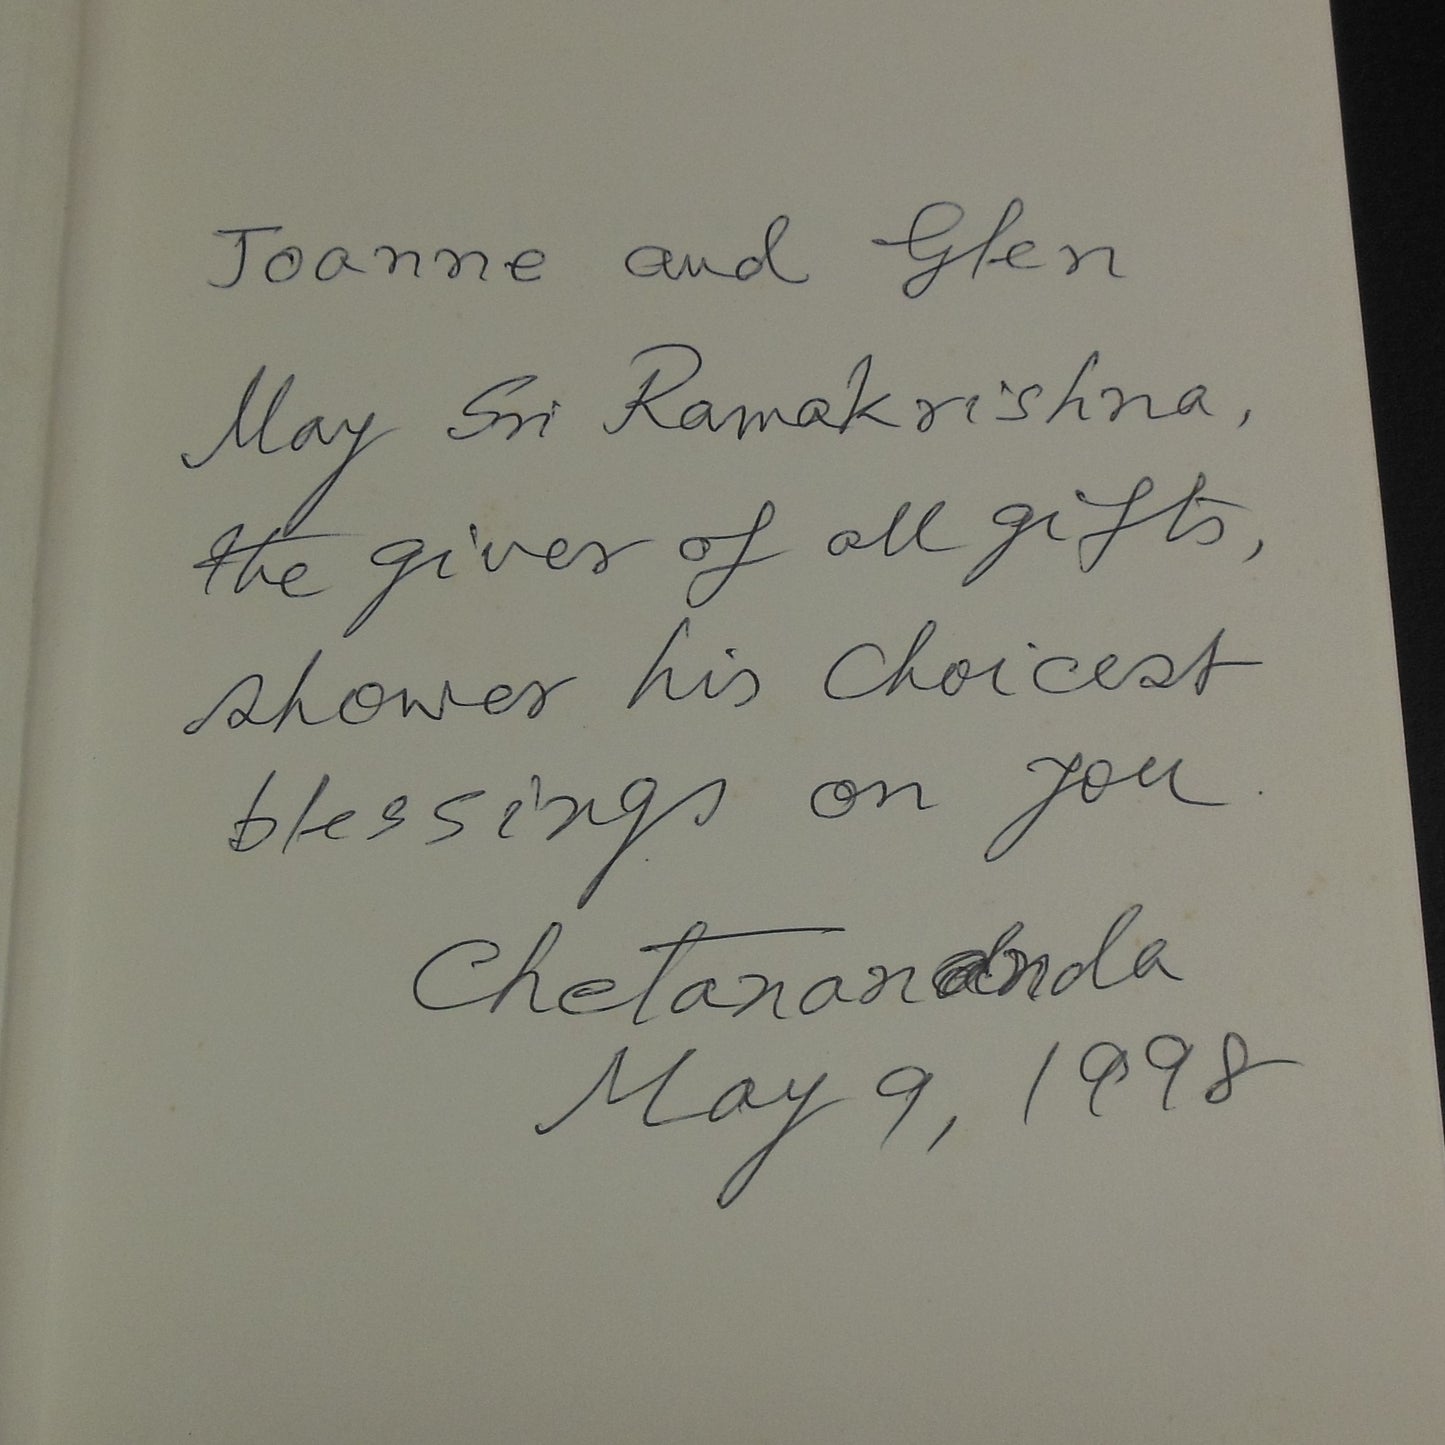 Joanne and Glen
May Sri Ramakrishna,
the giver of all gifts,
shower his choicest
blessings on you.
Chetanananda
May 9, 1998